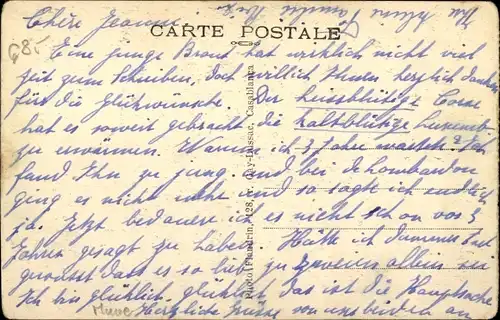 Chère Jeanne!
CARTE POSTALE
G85
Eine junge Braut hat wirklich nicht viel
Zeit zum Schreiben, doch will ich Ihnen herzlich danken
für die Glückwünsche. Der heissblütige Corse
hat es soweit gebracht die kaltblütige Luxemb-
zu erwärmen. Warum ich 3 Jahre wartete. Ich
fand Ihn zu jung und bei
ging es nicht mehr und so sagte ich endlich
ja. Jetzt bedauere ich es nicht schon vor 3
Jahren gesagt zu haben. Hätte ich damals
gewusst dass es so lieb zu zweien allein sei
Ich bin glücklich, glücklich das ist die Hauptsache
Herzliche Grüsse von uns beiden an
Photo Flandrin, 128, r. Gay-Lussac, Casablanca